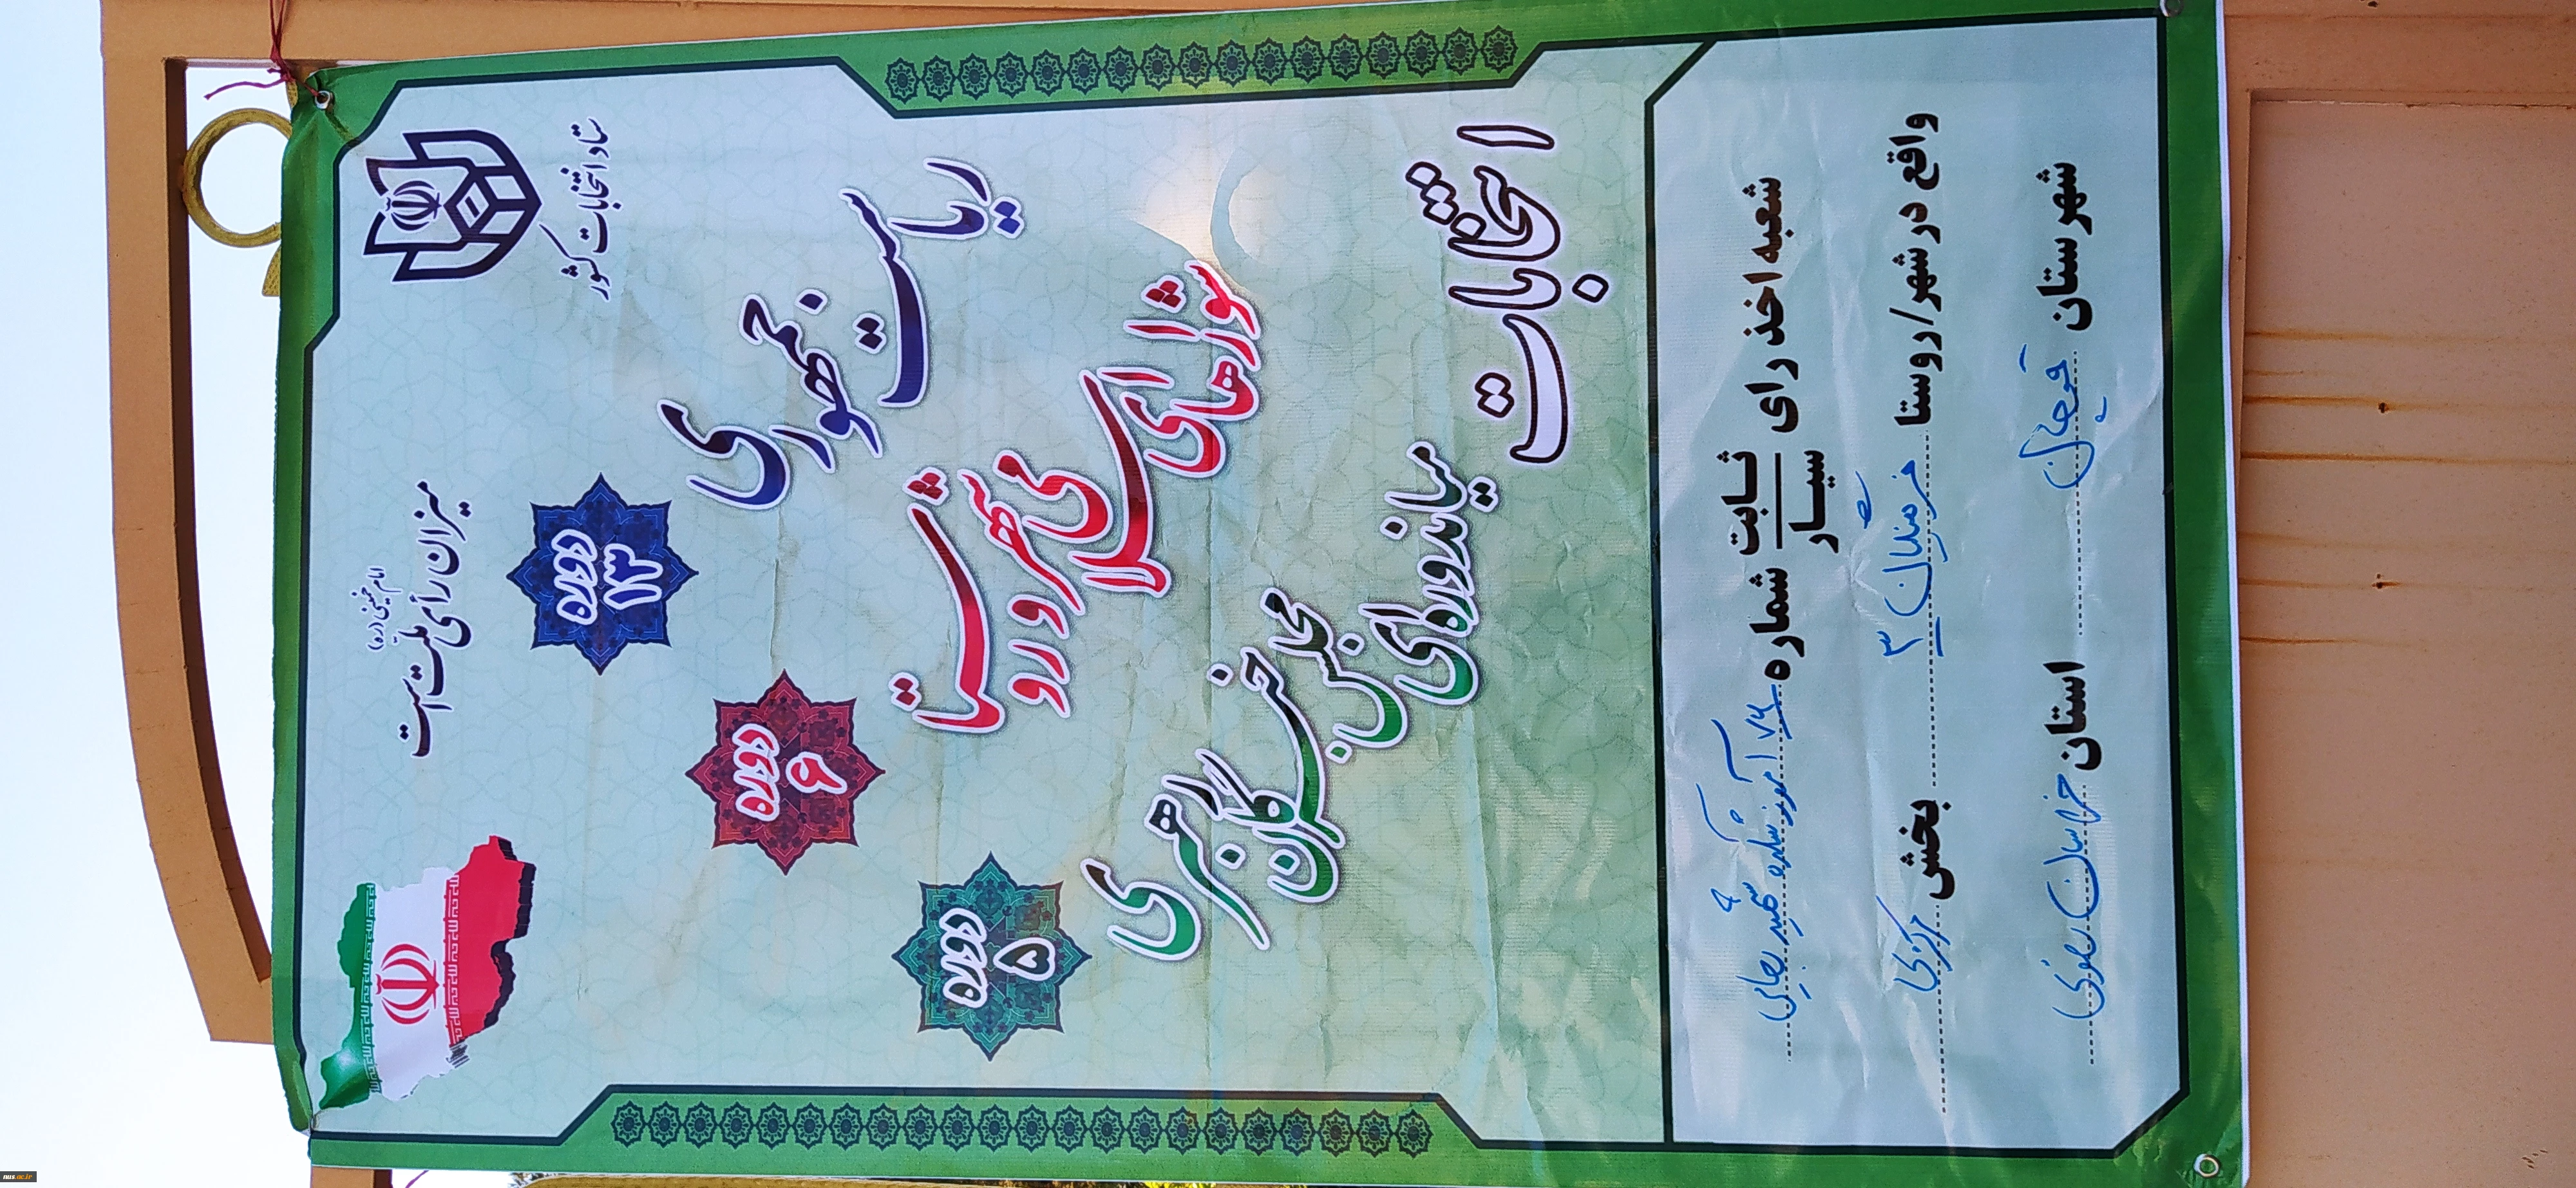 ستاد انتخابات کشور
امام خمینی (ره)
میزان رأی ملت است
دوره ۱۳
ریاست جمهوری
دوره ۶
شوراهای اسلامی شهر و روستا
دوره ۵
میاندوره‌ای مجلس خبرگان رهبری
انتخابات
شعبه اخذ رای ثابت سیار شماره ۱۷۶ آموزشکده شهید رجایی
واقع در شهر/روستا بخش مرکزی
شهرستان قوچان استان خراسان رضوی
nus.ac.ir